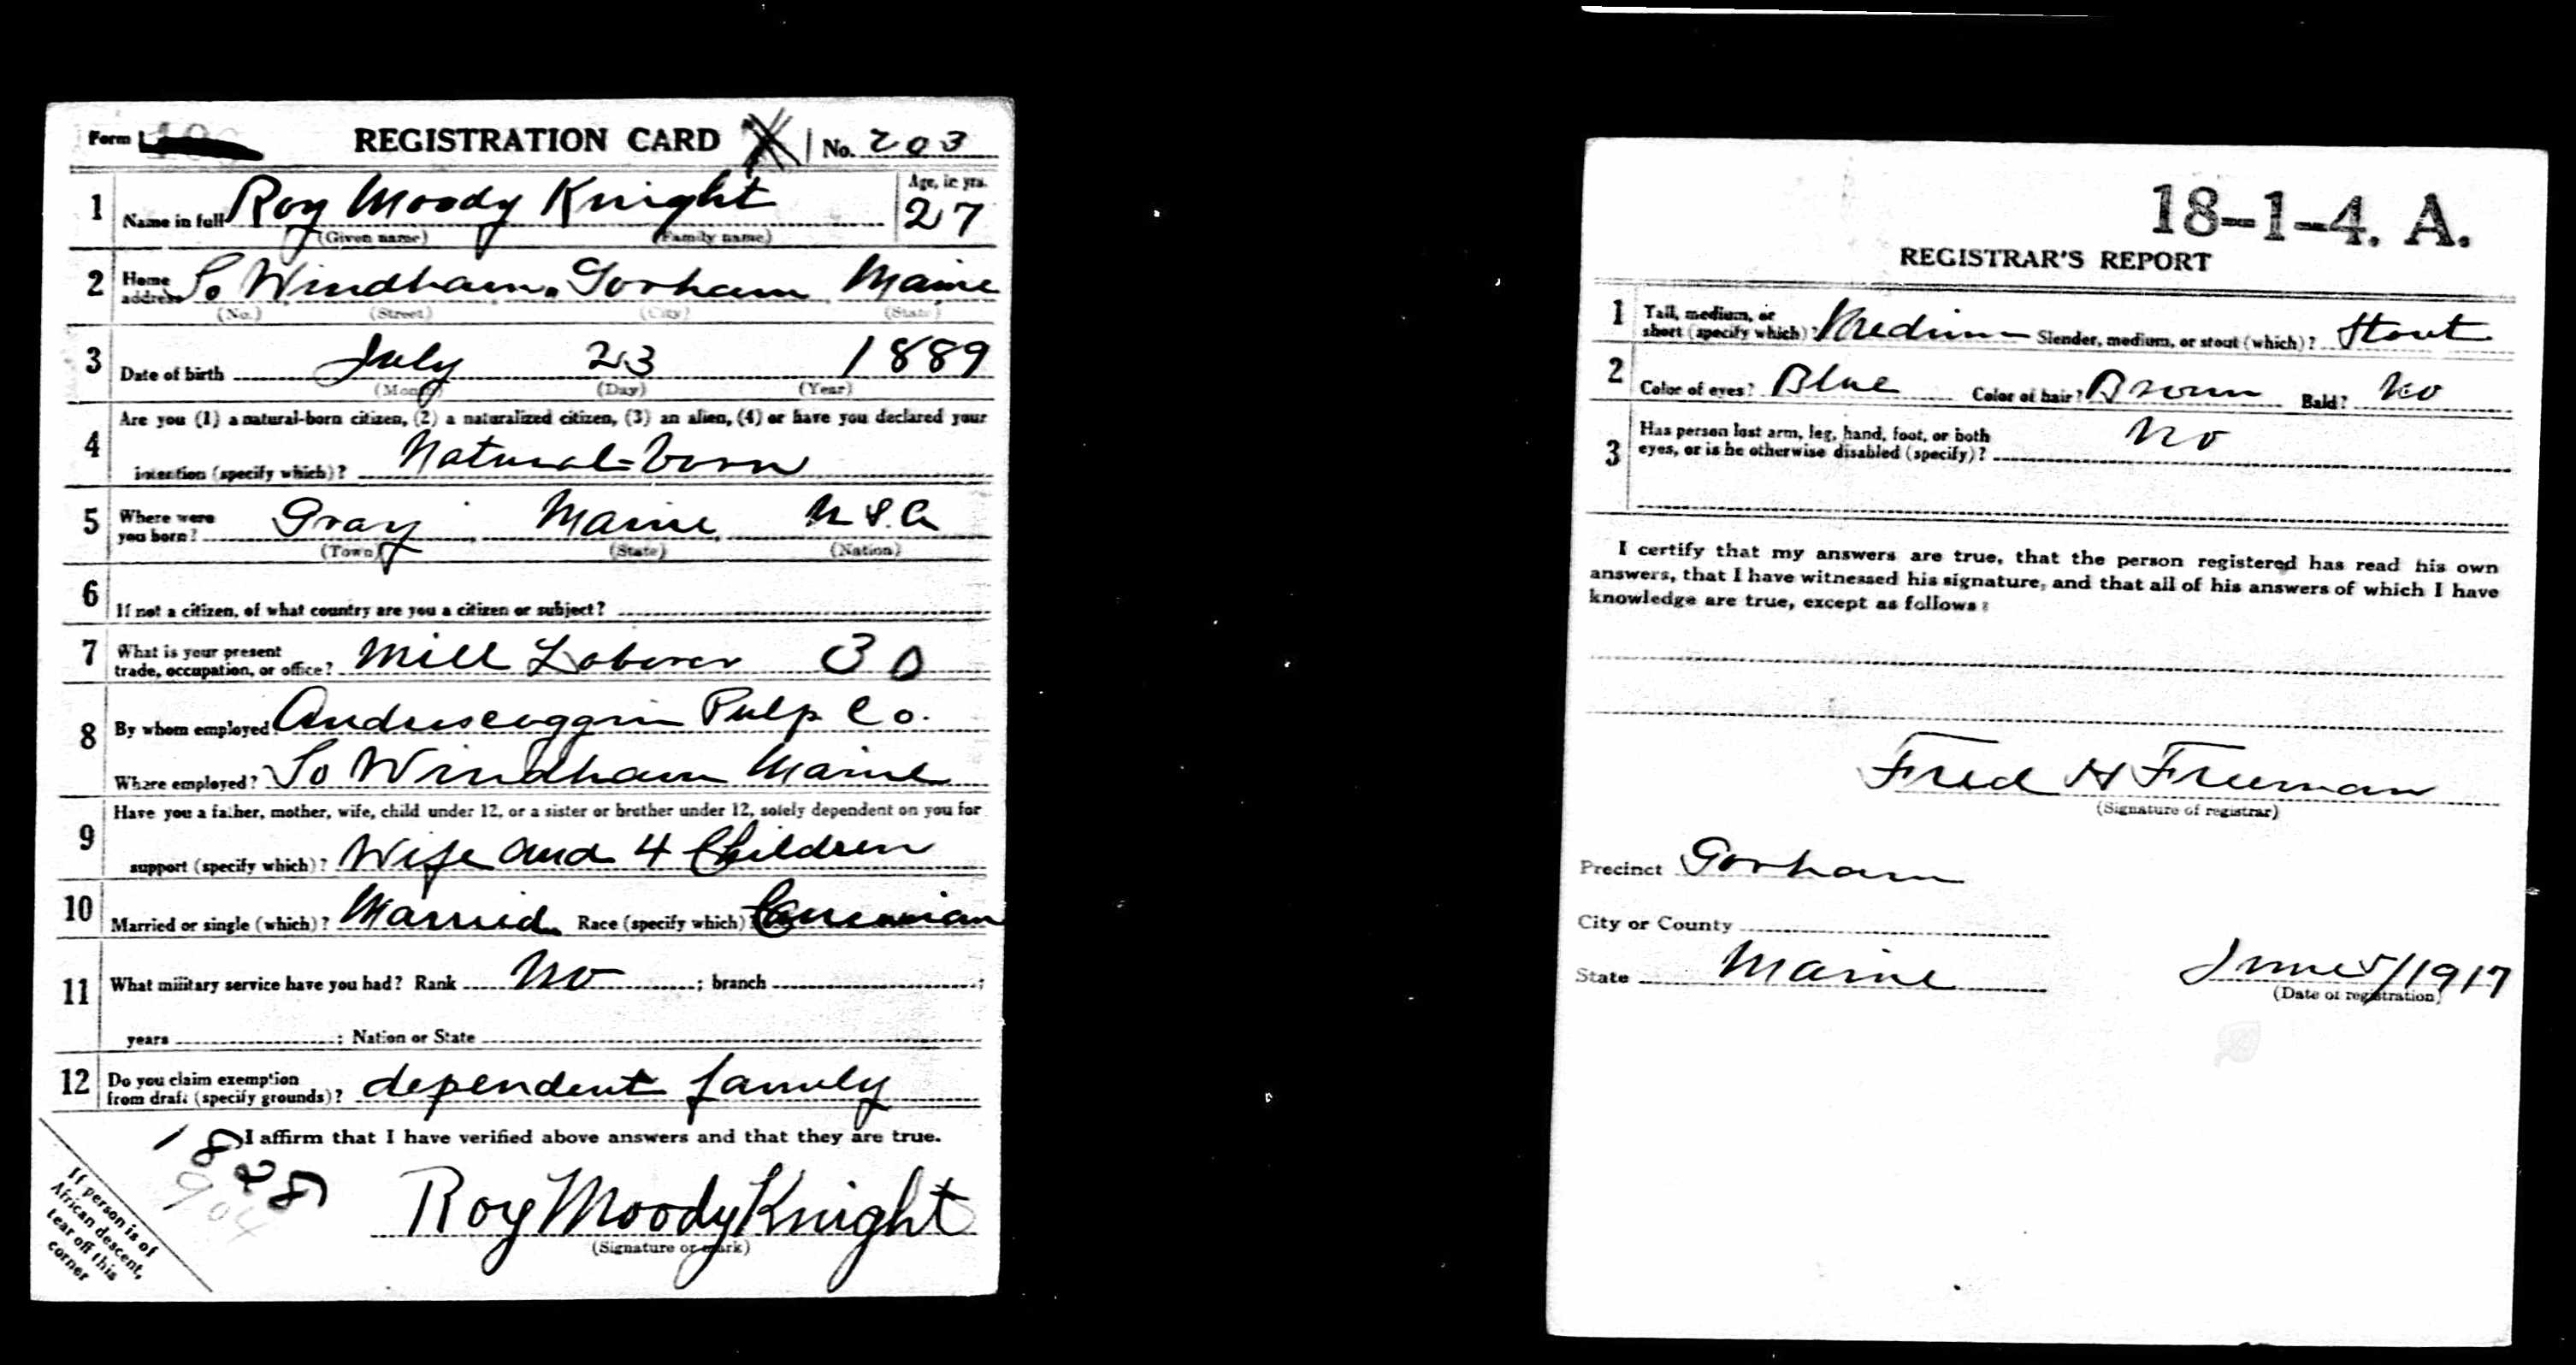 Form 1
REGISTRATION CARD
No. 203
1 Name in full Roy Moody Knight
(Given name) (Family name)
Age, in yrs.
27
2 Home address So Windham. Gorham Maine
(No.) (Street) (City) (State)
3 Date of birth July 23 1889
(Month) (Day) (Year)
Are you (1) a natural-born citizen, (2) a naturalized citizen, (3) an alien, (4) or have you declared your
4 intention (specify which)? Natural-born
5 Where were you born? Gray Maine U.S.A
(Town) (State) (Nation)
6 If not a citizen, of what country are you a citizen or subject?
7 What is your present trade, occupation, or office? Mill Laborer 30
8 By whom employed Androscoggin Pulp Co.
Where employed? So Windham Maine
Have you a father, mother, wife, child under 12, or a sister or brother under 12, solely dependent on you for
9 support (specify which)? Wife and 4 Children
10 Married or single (which)? Married Race (specify which)? Caucasian
11 What military service have you had? Rank No ; branch ;
years ; Nation or State
12 Do you claim exemption from draft (specify grounds)? dependent family
I affirm that I have verified above answers and that they are true.
1828
904
Roy Moody Knight
(Signature or mark)
If person is of
African descent,
tear off this
corner
18-1-4. A.
REGISTRAR'S REPORT
1 Tall, medium, or short (specify which)? Medium Slender, medium, or stout (which)? Stout
2 Color of eyes? Blue Color of hair? Brown Bald? No
3 Has person lost arm, leg, hand, foot, or both
eyes, or is he otherwise disabled (specify)? No
I certify that my answers are true, that the person registered has read his own
answers, that I have witnessed his signature, and that all of his answers of which I have
knowledge are true, except as follows:
Fred H Freeman
(Signature of registrar)
Precinct Gorham
City or County
State Maine
June 5/1917
(Date of registration)